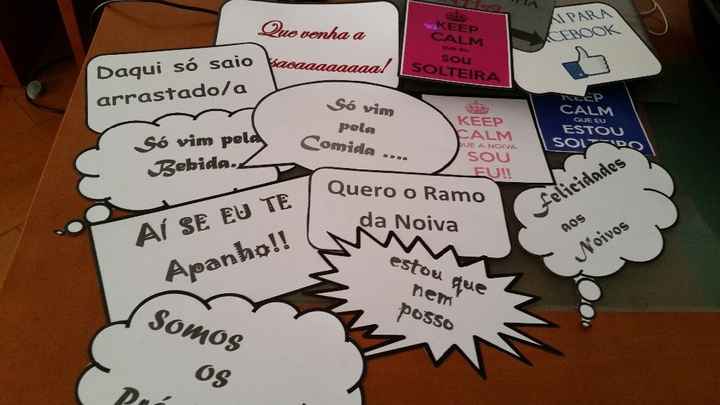 Que venha a
KEEP
CALM
QUE EU
SOU
SOLTEIRA
PARA
Daqui só saio
arrastado/a
Só vim pela
Bebida..
Só vim
pela
Comida ....
KEEP
CALM
QUE A NOIVA
SOU
EU!!
KEEP
CALM
QUE EU
ESTOU
Felicidades
aos
Noivos
Quero o Ramo
da Noiva
AÍ SE EU TE
Apanho!!
estou que
nem
posso
Somos
os